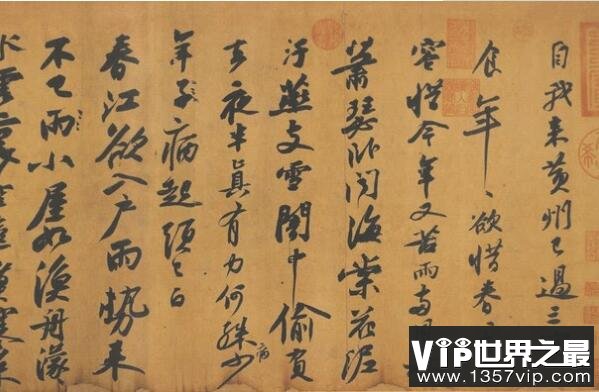 自我來黃州已過三
食年〻欲惜春
容惜今年又苦雨兩月
蕭瑟臥聞海棠花泥
汙燕支雪闇中偷負
去夜半真有力何殊少
病
年子病起頭已白
春江欲入戶雨勢來
不已雨小屋如漁舟濛
水雲裏空
VIP世界之最
www.1357vip.com